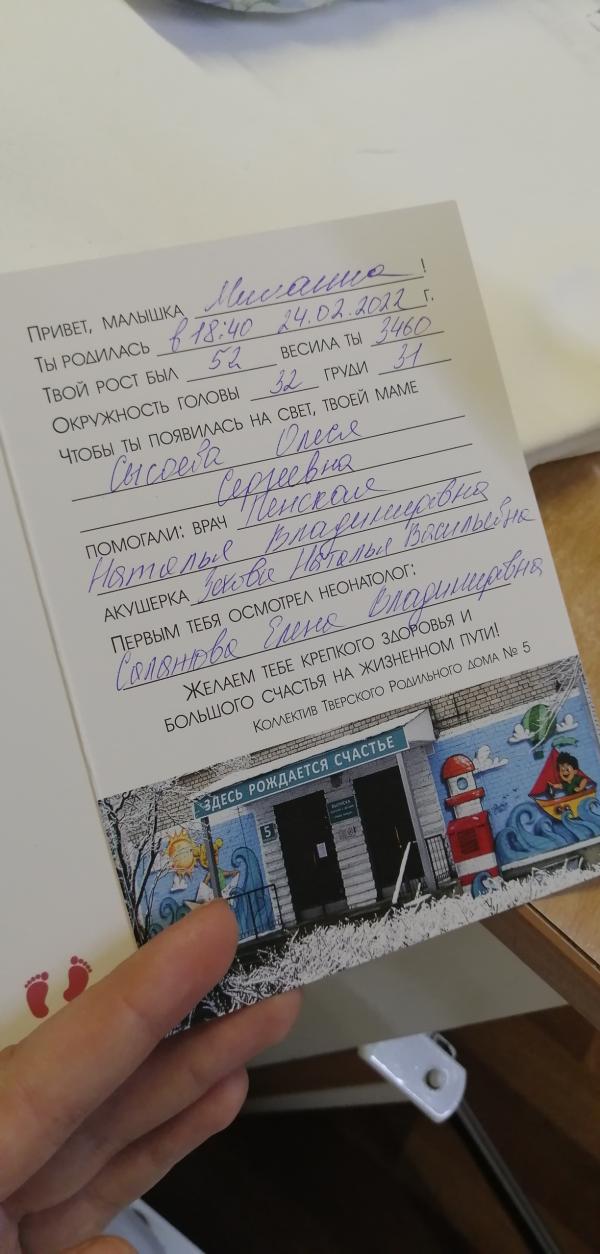 Привет, малышка Миланна!
Ты родилась в 18:40 24.02.2022 г.
Твой рост был 52 весила ты 3460
Окружность головы 32 груди 31
Чтобы ты появилась на свет, твоей маме
Сысоева Олеся
Сергеевна
помогали: врач Пенская
Наталья Владимировна
акушерка Наталья Васильевна
Первым тебя осмотрел неонатолог:
Елена Владимировна
Желаем тебе крепкого здоровья и
большого счастья на жизненном пути!
Коллектив Тверского Родильного дома № 5
ЗДЕСЬ РОЖДАЕТСЯ СЧАСТЬЕ
5
ВЫПИСКА